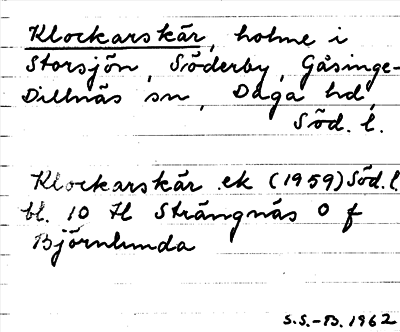 Klockarskär, holme i
Storsjön, Söderby, Gåsinge-
Dillnäs sn, Daga hd,
Söd. l.
Klockarskär ek (1959) Söd. l.
bl. 10 Il Strängnäs O f
Björnlunda
S.S.-B. 1962